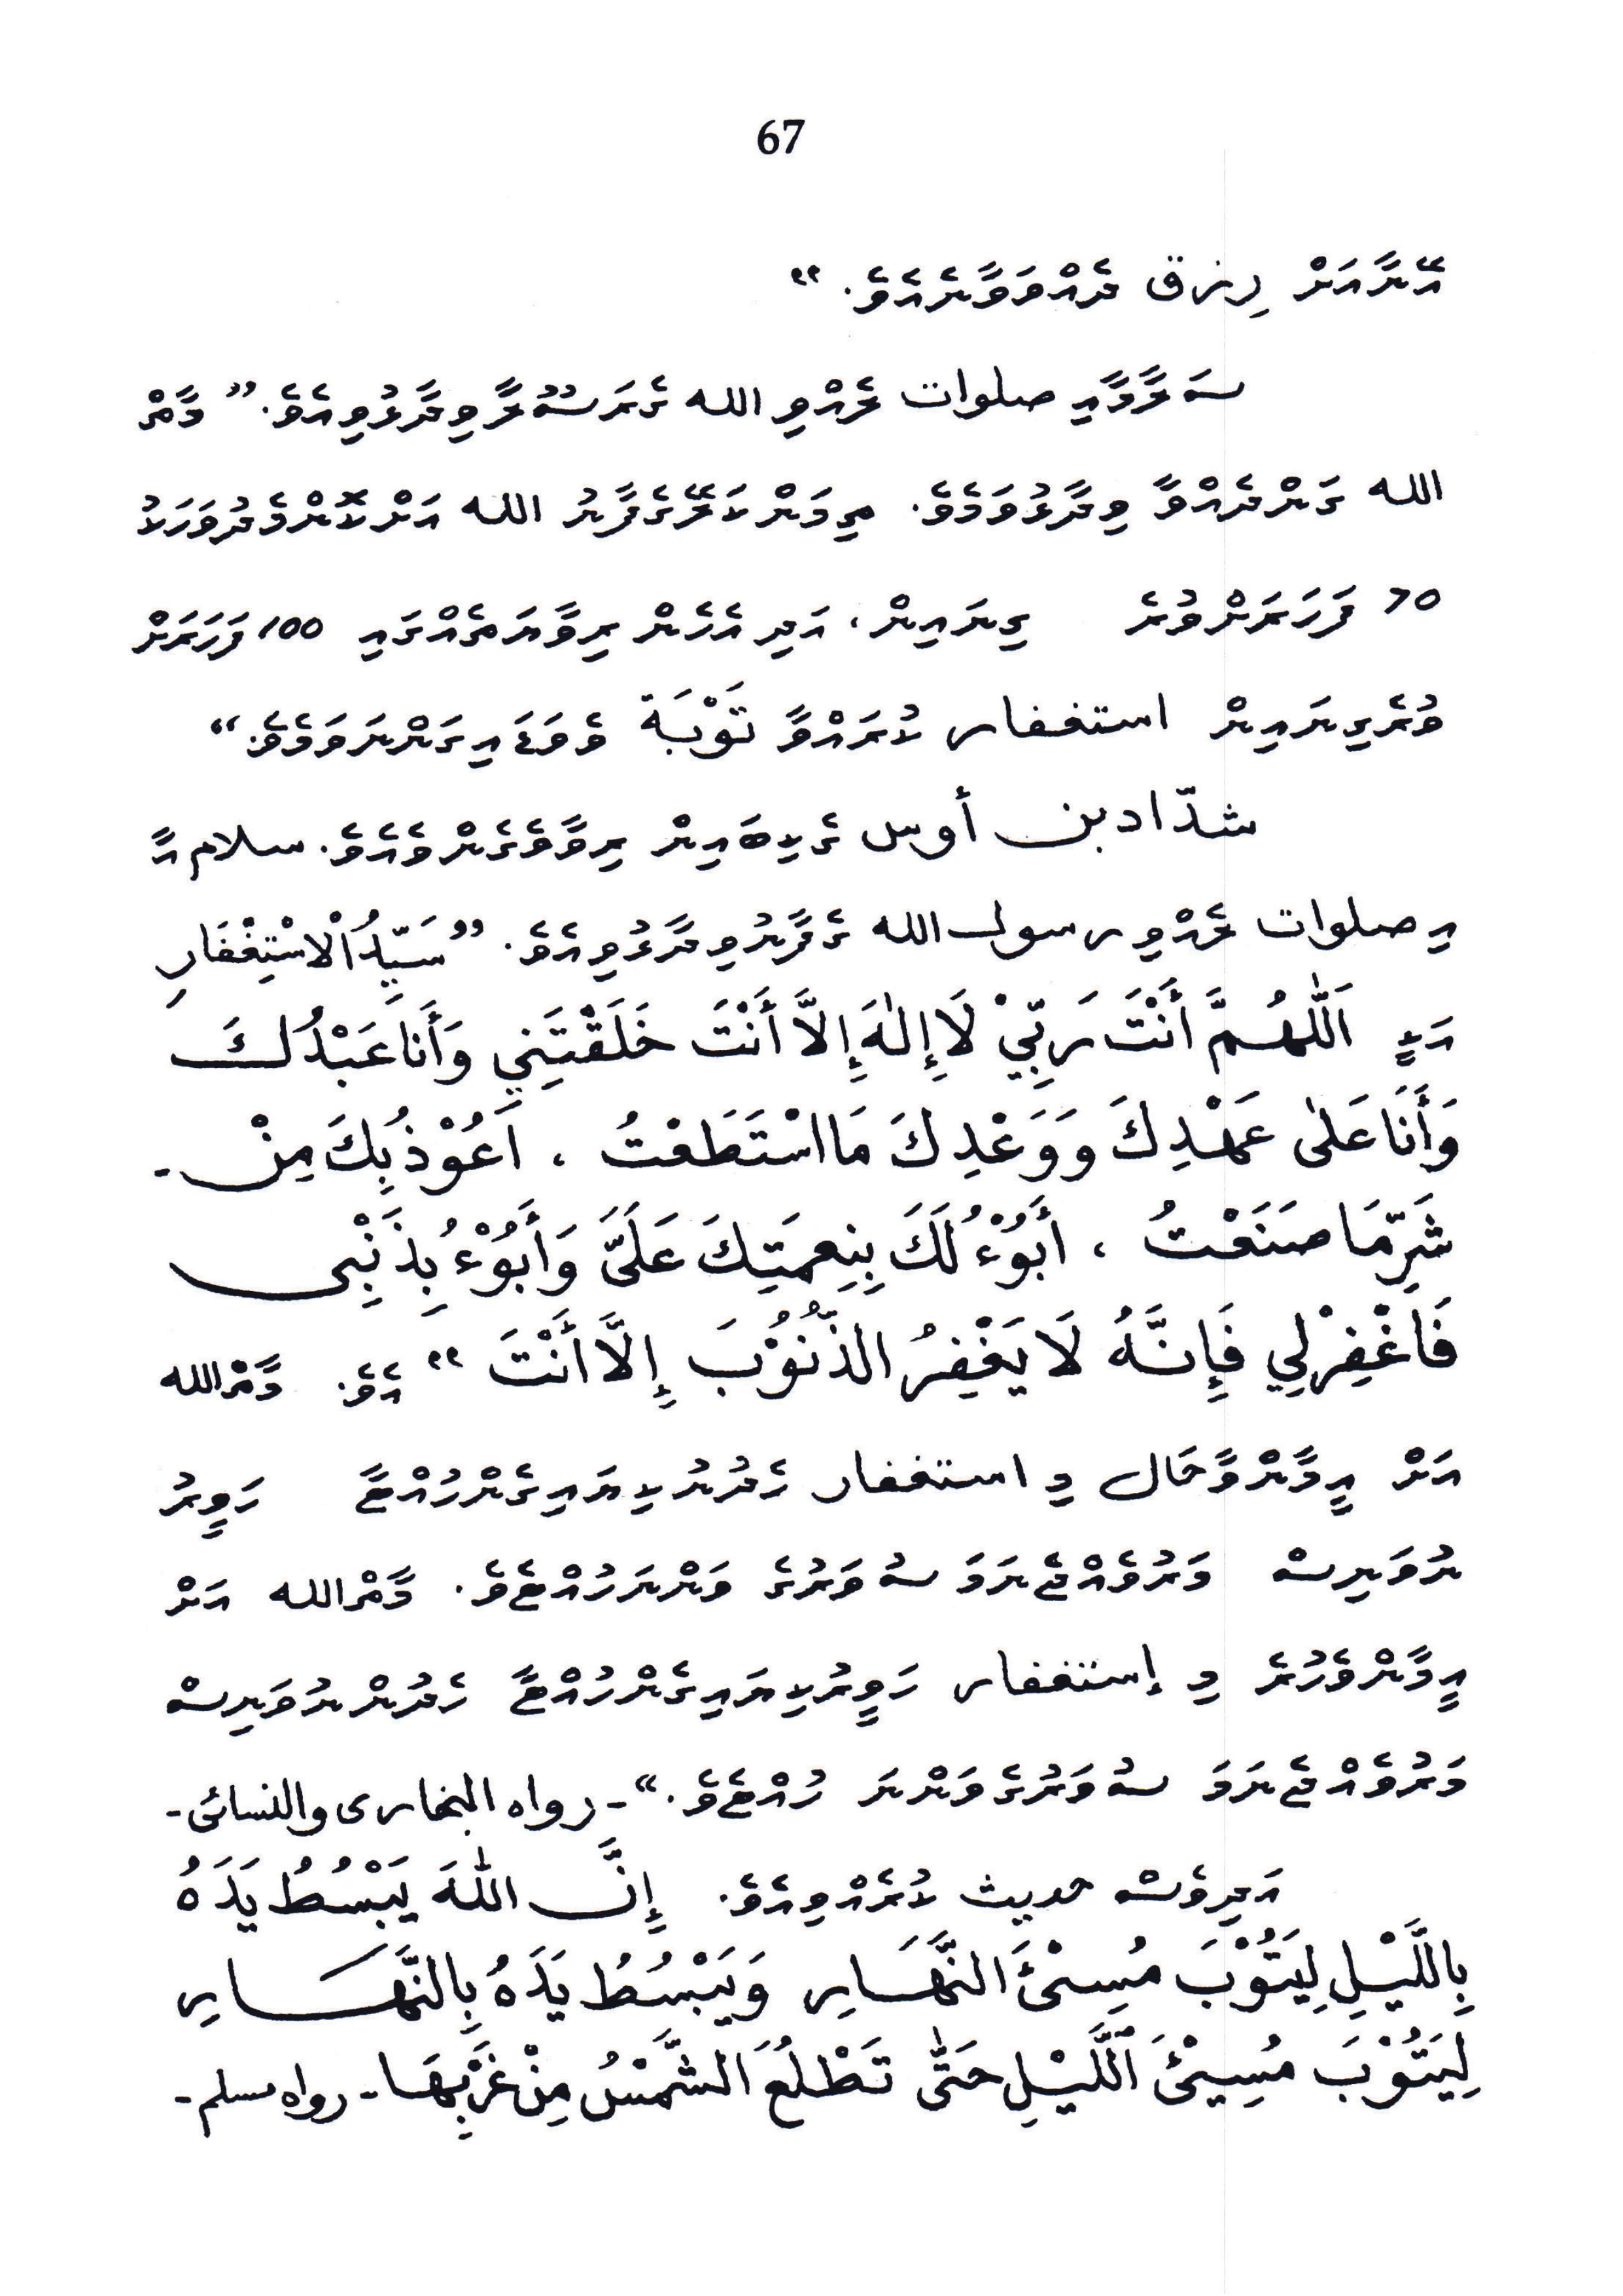 67
އޭނާއަށް رިزق ދެއްވަވާނެއެވެ. "
ސަލާމާއި صلوات ލެއްވި الله ގެރަސޫލާ ވިދާޅުވިއެވެ. " މާތް
الله ގަންދެއްވާ ވިދާޅުވަމެވެ. ތިމަންކަލޭގެފާނު الله އަށްޓޮންމެދުވަހަކު
70 ފަހަރަށްވުރެ ގިނައިން، އަދި އެހެން ރިވާޔަތެއްގައި 100 ފަހަރަށް
ވުރެގިނައިން استغفار ކުރައްވާ تَوْبَة ވެވަޑައިގަންނަވަމެވެ. "
شدّاد بن أوس ގެކިބައިން ރިވާވެގެންވެއެވެ. سلام އާ
އި صلوات ލެއްވި رسول الله ގެފާނުވިދާޅުވިއެވެ. " سَيِّدُ الْاسْتِغْفَارِ
އަކީ اَللّٰهُمَّ أَنْتَ رَبِّيْ لَا إِلٰهَ إِلاَّ أَنْتَ خَلَقْتَنِي وَأَنَا عَبْدُكَ
وَأَنَا عَلٰى عَهْدِكَ وَوَعْدِكَ مَا اسْتَطَعْتُ ، اَعُوْذُ بِكَ مِنْ -
شَرِّ مَا صَنَعْتُ ، أَبُوْءُ لَكَ بِنِعمَتِكَ عَلَىَّ وَأَبُوْءُ بِذَنْبِى
فَاغْفِرْلِي فَإِنَّهُ لَا يَغْفِرُ الذُّنُوْبَ إِلاَّ أَنْتَ " އެވެ. މާތްالله
އަށް އީމާންވާހަށް މި استغفار ހެދުނު ކިޔައިގެންހުއްޓާ ހަވީރު
ނުވަނިސް މަރުވެއްޖެނަމަ ސުވަރުގެ ވަންނަހުއްޓެވެ. މާތްالله އަށް
އީމާންވެހުރެ މި إستغفار ހަވީރުކިޔައިގެންހުއްޓާ ހެދުންނުވަނިސް
މަރުވެއްޖެނަމަ ސުވަރުގެވަންނަ ހުއްޓެވެ." - رواه البخارى والنسائى -
އަދިވެސް حديث ކުރެއްވިއެވެ. إِنَّ اللّٰهَ يَبْسُطُ يَدَهُ
بِاللَّيْلِ لِيَتُوْبَ مُسِىْئَ النَّهَارِ وَيَبْسُطُ يَدَهُ بِالنَّهَارِ
لِيَتُوْبَ مُسِيْئَ اللَّيْلِ حَتّٰى تَطْلُعَ الشَّمْسُ مِنْ غَرْبِهَا - رواه مسلم -